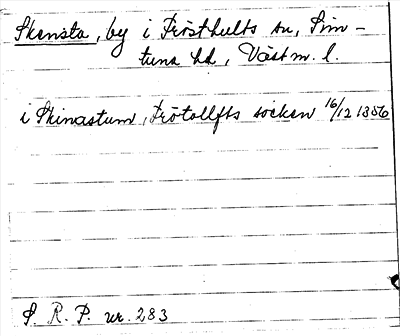 Skensta, by i Frösthults sn, Sim-
tuna hd, Västm. l.
i Skinastum, Frötollfts socken 16/12 1356
S R. P. nr. 283